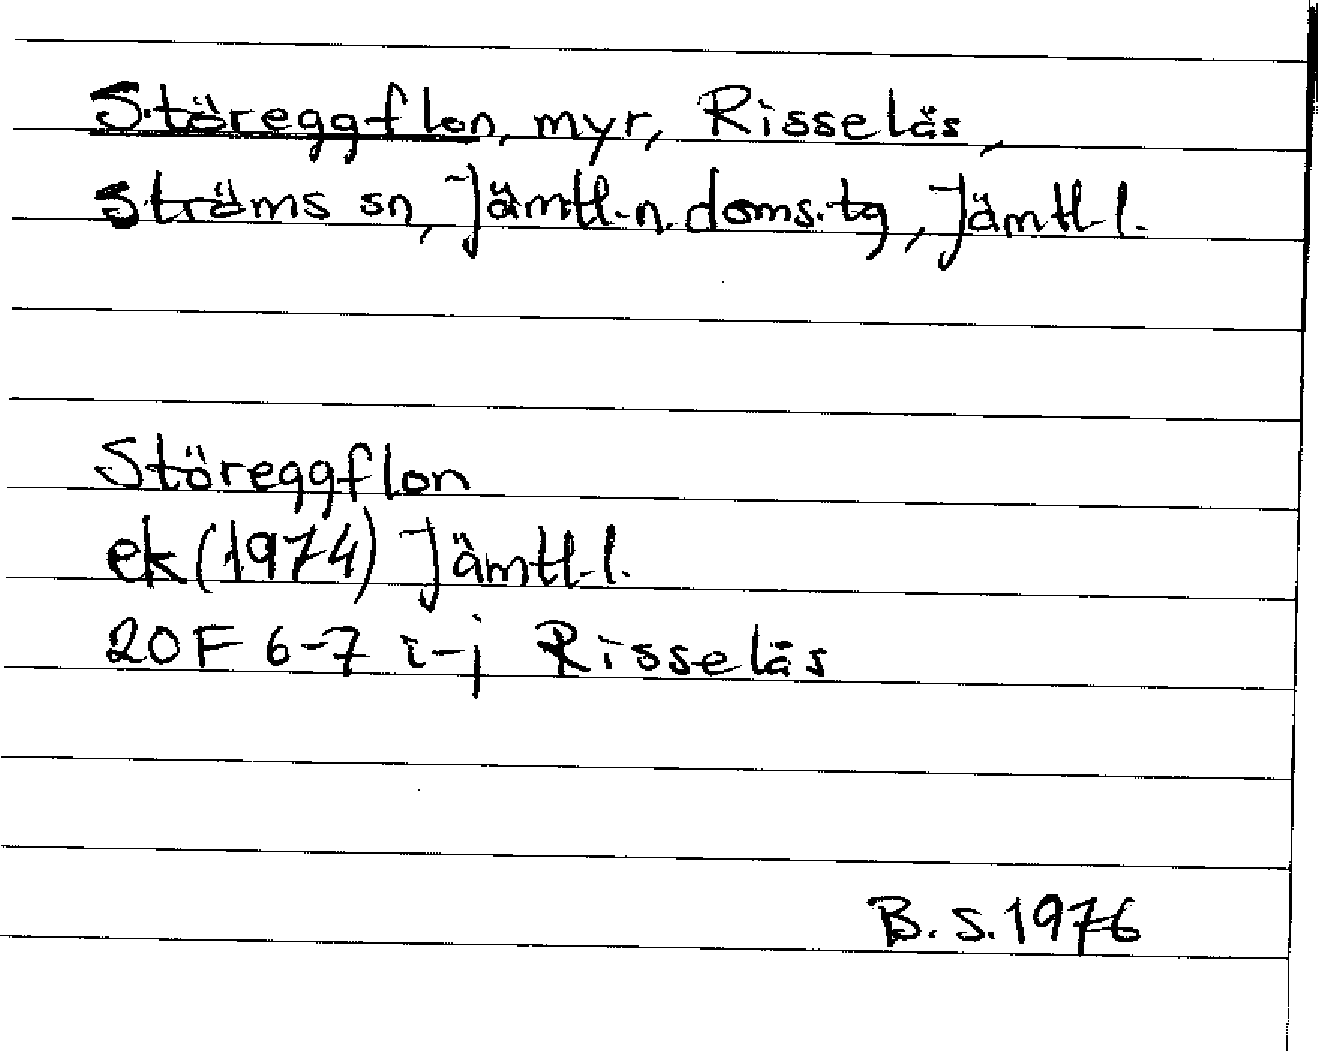 Störeggflon, myr, Risselås,
Ströms sn, Jämtl.n. doms.tg, Jämtl l.
Störeggflon
ek (1974) Jämtl.l.
20F 6-7 i-j Risselås
B.S.1976